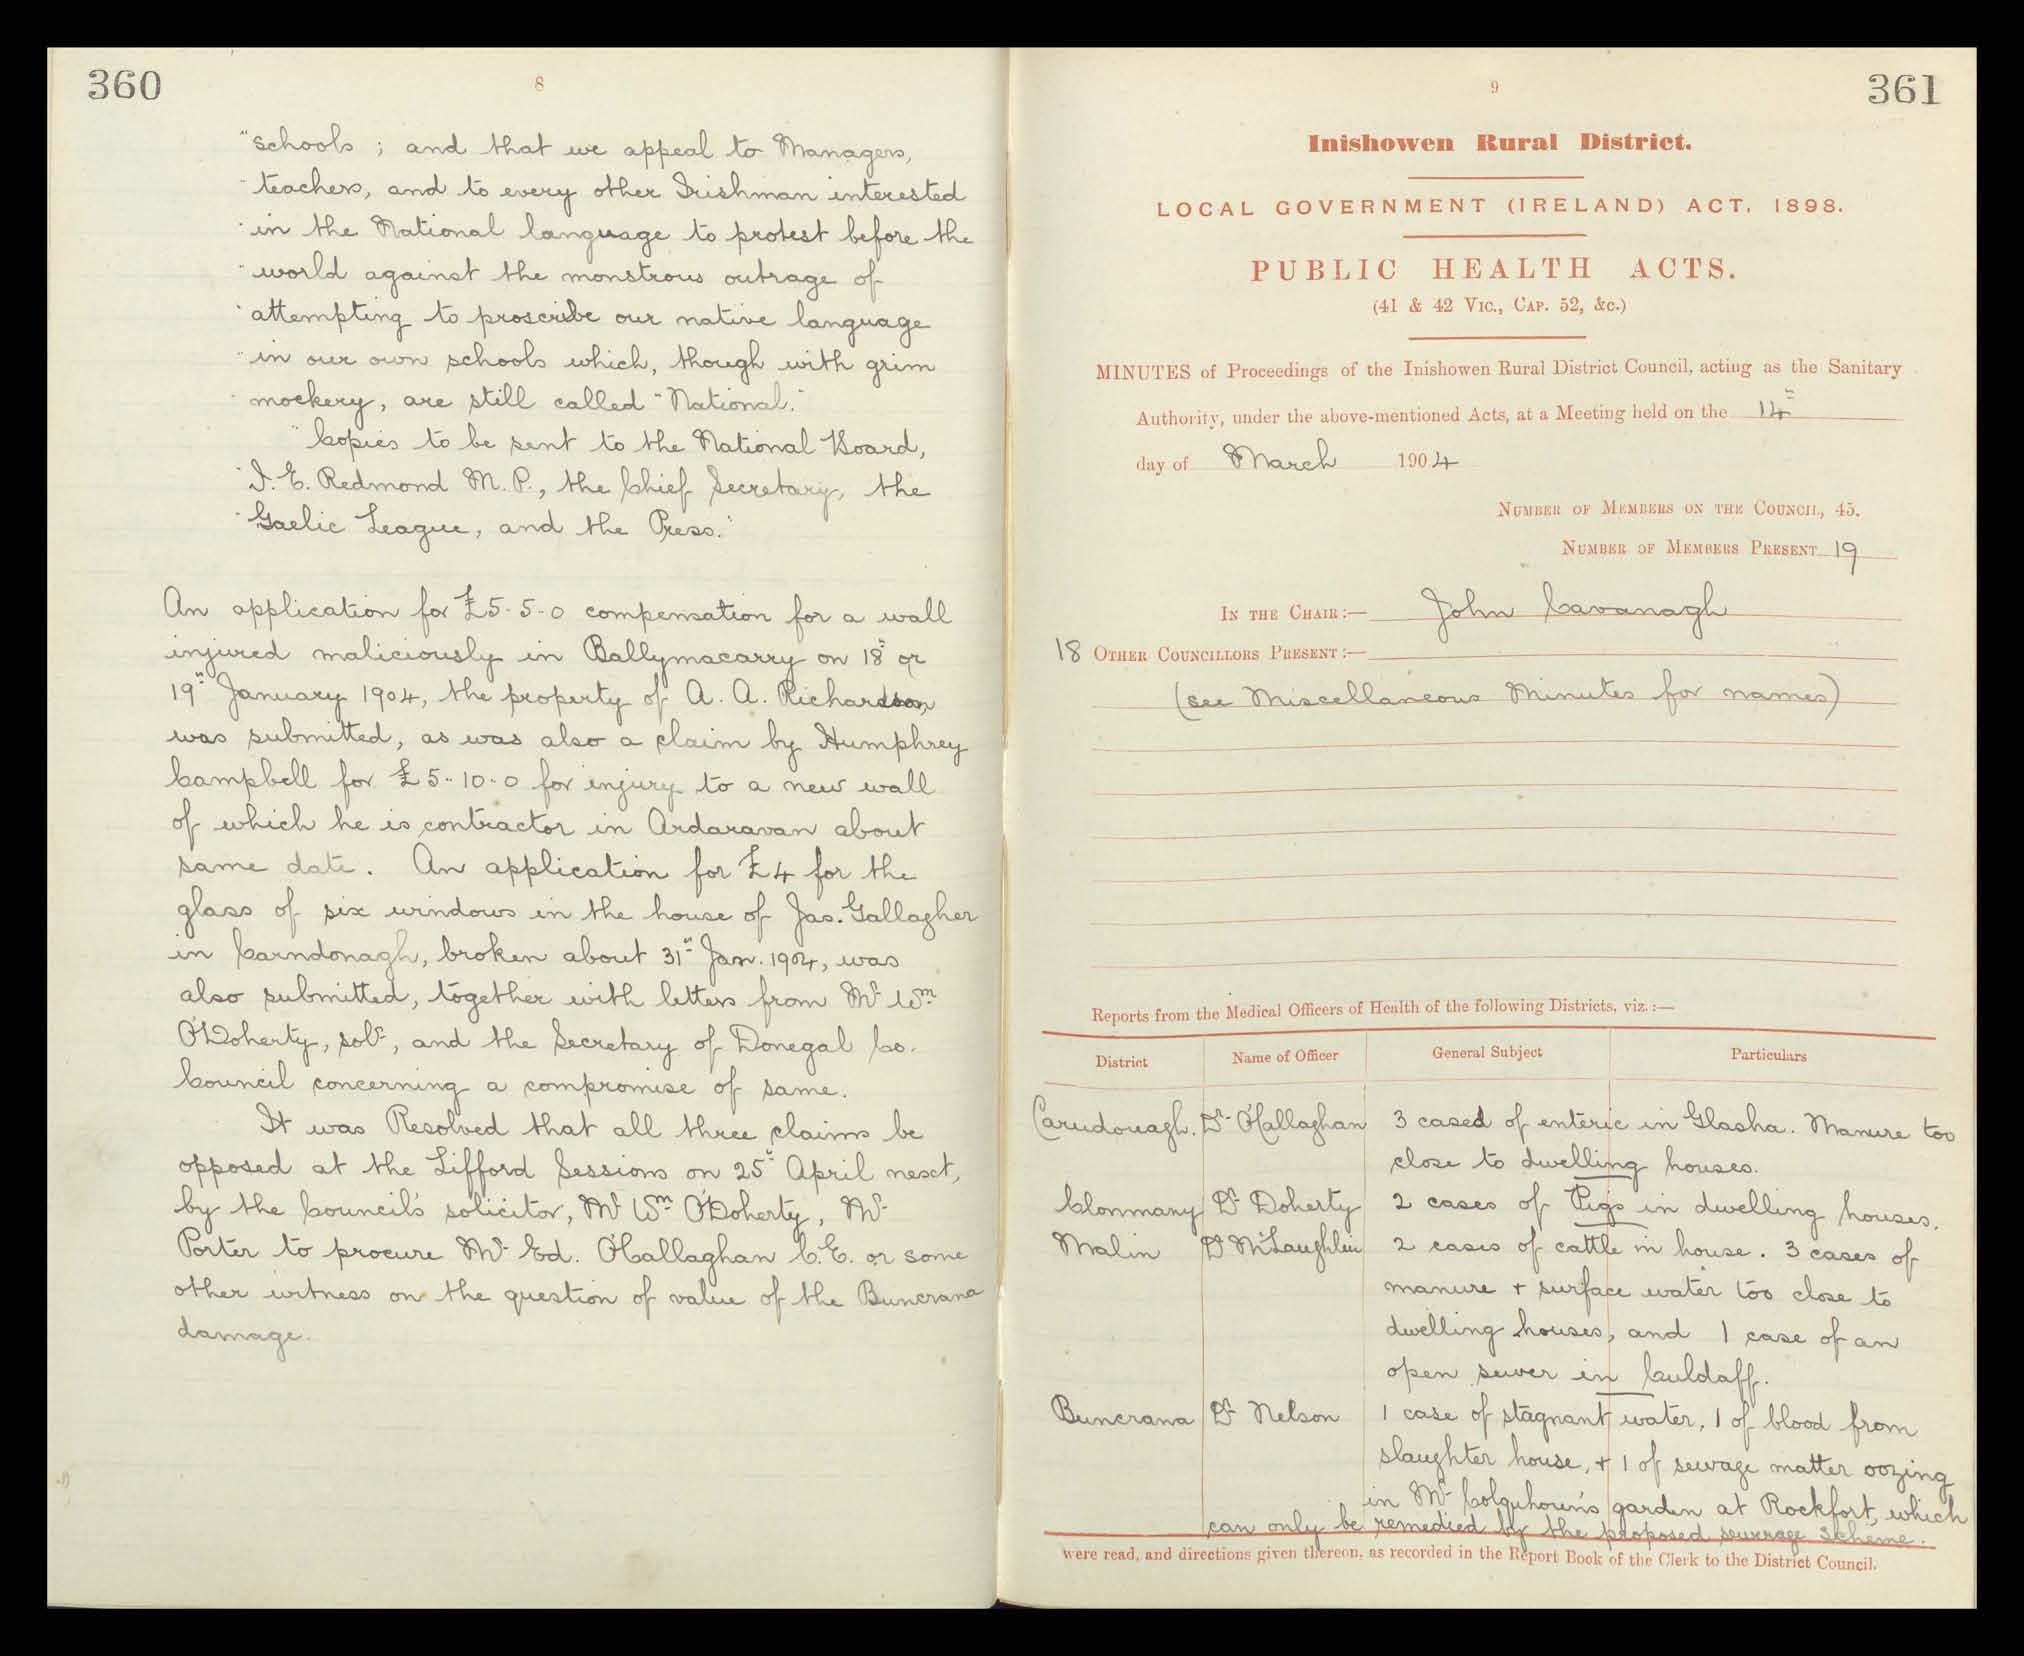 360
8
"schools ; and that we appeal to Managers,
"teachers, and to every other Irishman interested
"in the National language to protest before the
"world against the monstrous outrage of
"attempting to proscribe our native language
"in our own schools which, though with grim
"mockery, are still called "National."
"Copies to be sent to the National Board,
"J. E. Redmond M. P., the Chief Secretary, the
"Gaelic League, and the Press."
An application for £5-5-0 compensation for a wall
injured maliciously in Ballymacarry on 18th or
19th January 1904, the property of A. A. Richardson,
was submitted, as was also a claim by Humphrey
Campbell for £5-10-0 for injury to a new wall
of which he is contractor in Ardaravan about
same date. An application for £4 for the
glass of six windows in the house of Jas. Gallagher
in Carndonagh, broken about 31st Jan. 1904, was
also submitted, together with letters from Mr Wm
O'Doherty, solr, and the Secretary of Donegal Co.
Council concerning a compromise of same.
It was Resolved that all three claims be
opposed at the Lifford Sessions on 25th April next,
by the Council's solicitor, Mr Wm O'Doherty, Mr
Porter to procure Mr Ed. O'Callaghan C.E. or some
other witness on the question of value of the Buncrana
damage.
9
361
Inishowen Rural District.
LOCAL GOVERNMENT (IRELAND) ACT, 1898.
PUBLIC HEALTH ACTS.
(41 & 42 VIC., CAP. 52, &c.)
MINUTES of Proceedings of the Inishowen Rural District Council, acting as the Sanitary
Authority, under the above-mentioned Acts, at a Meeting held on the 14th
day of March 1904
NUMBER OF MEMBERS ON THE COUNCIL, 45.
NUMBER OF MEMBERS PRESENT 19
IN THE CHAIR:— John Cavanagh
18 OTHER COUNCILLORS PRESENT:—
(see Miscellaneous Minutes for names)
Reports from the Medical Officers of Health of the following Districts, viz.:—
District Name of Officer General Subject Particulars
Carndonagh. Dr O'Callaghan 3 cased of enteric in Glasha. Manure too
close to dwelling houses.
Clonmany Dr Doherty 2 cases of Pigs in dwelling houses.
Malin Dr McLaughlin 2 cases of cattle in house. 3 cases of
manure + surface water too close to
dwelling houses, and 1 case of an
open sewer in Culdaff.
Buncrana Dr Nelson 1 case of stagnant water, 1 of blood from
slaughter house, + 1 of sewage matter oozing
in Mr Colquhoun's garden at Rockfort, which
can only be remedied by the proposed sewerage scheme.
were read, and directions given thereon, as recorded in the Report Book of the Clerk to the District Council.